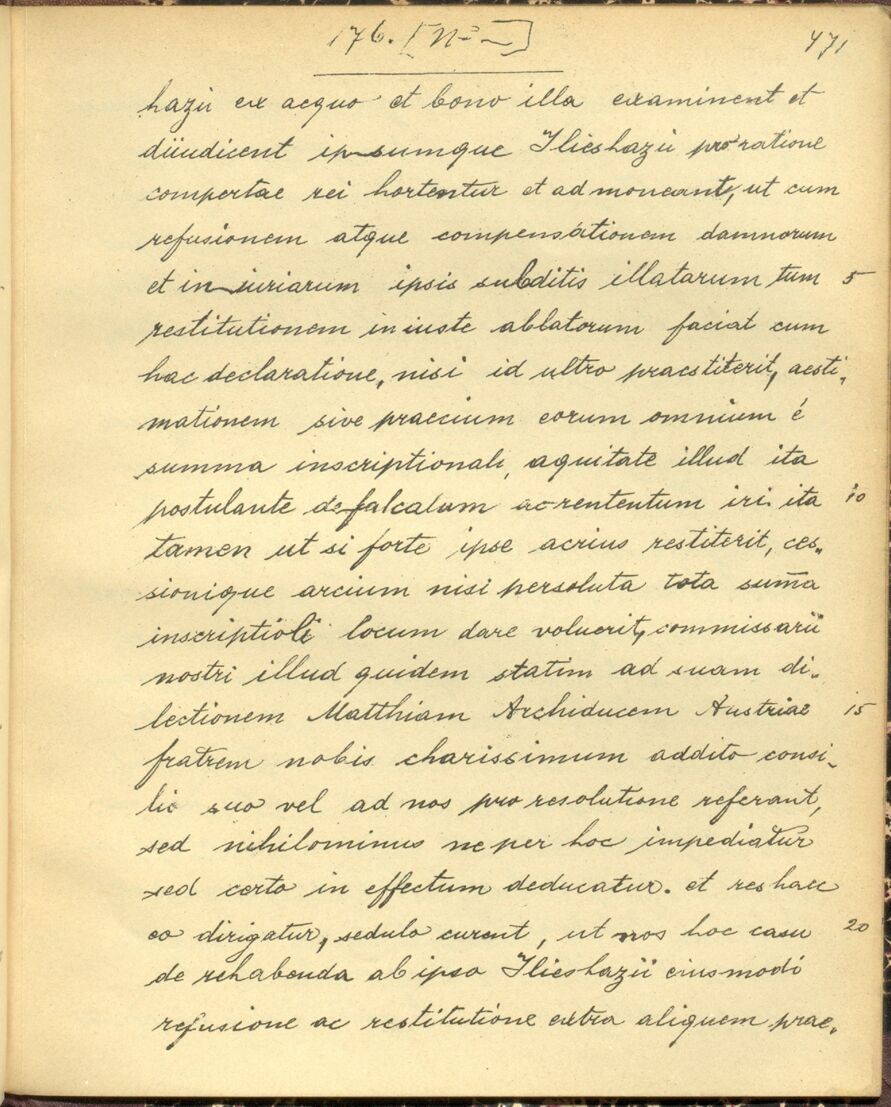 176. [Nº —]
471
hazii ex aequo et bono illa examinent et
diiudicent ipsumque Ilieshazii pro ratione
compertae rei hortentur et admoneant, ut cum
refusionem atque compensationem damnorum
et iniuriarum ipsis subditis illatarum tum 5
restitutionem iniuste ablatorum faciat cum
hac declaratione, nisi id ultro praestiterit, aesti-
mationem sive praecium eorum omnium é
summa inscriptionali, aquitate illud ita
postulante defalcatum ac rententum iri. ita 10
tamen ut si forte ipse acrius restiterit, ces-
sionique arcium nisi persoluta tota sum̄a
inscriptioli locum dare voluerit, commissarii
nostri illud quidem statim ad suam di-
lectionem Matthiam Archiducem Austriae 15
fratrem nobis charissimum addito consi-
lio suo vel ad nos pro resolutione referant,
sed nihilominus ne per hoc impediatur
sed certo in effectum deducatur. et res haec
eo dirigatur, sedulo curent, ut nos hoc casu 20
de rehabenda ab ipso Ilieshazii eiusmodi
refusione ac restitutione extra aliquem prae-